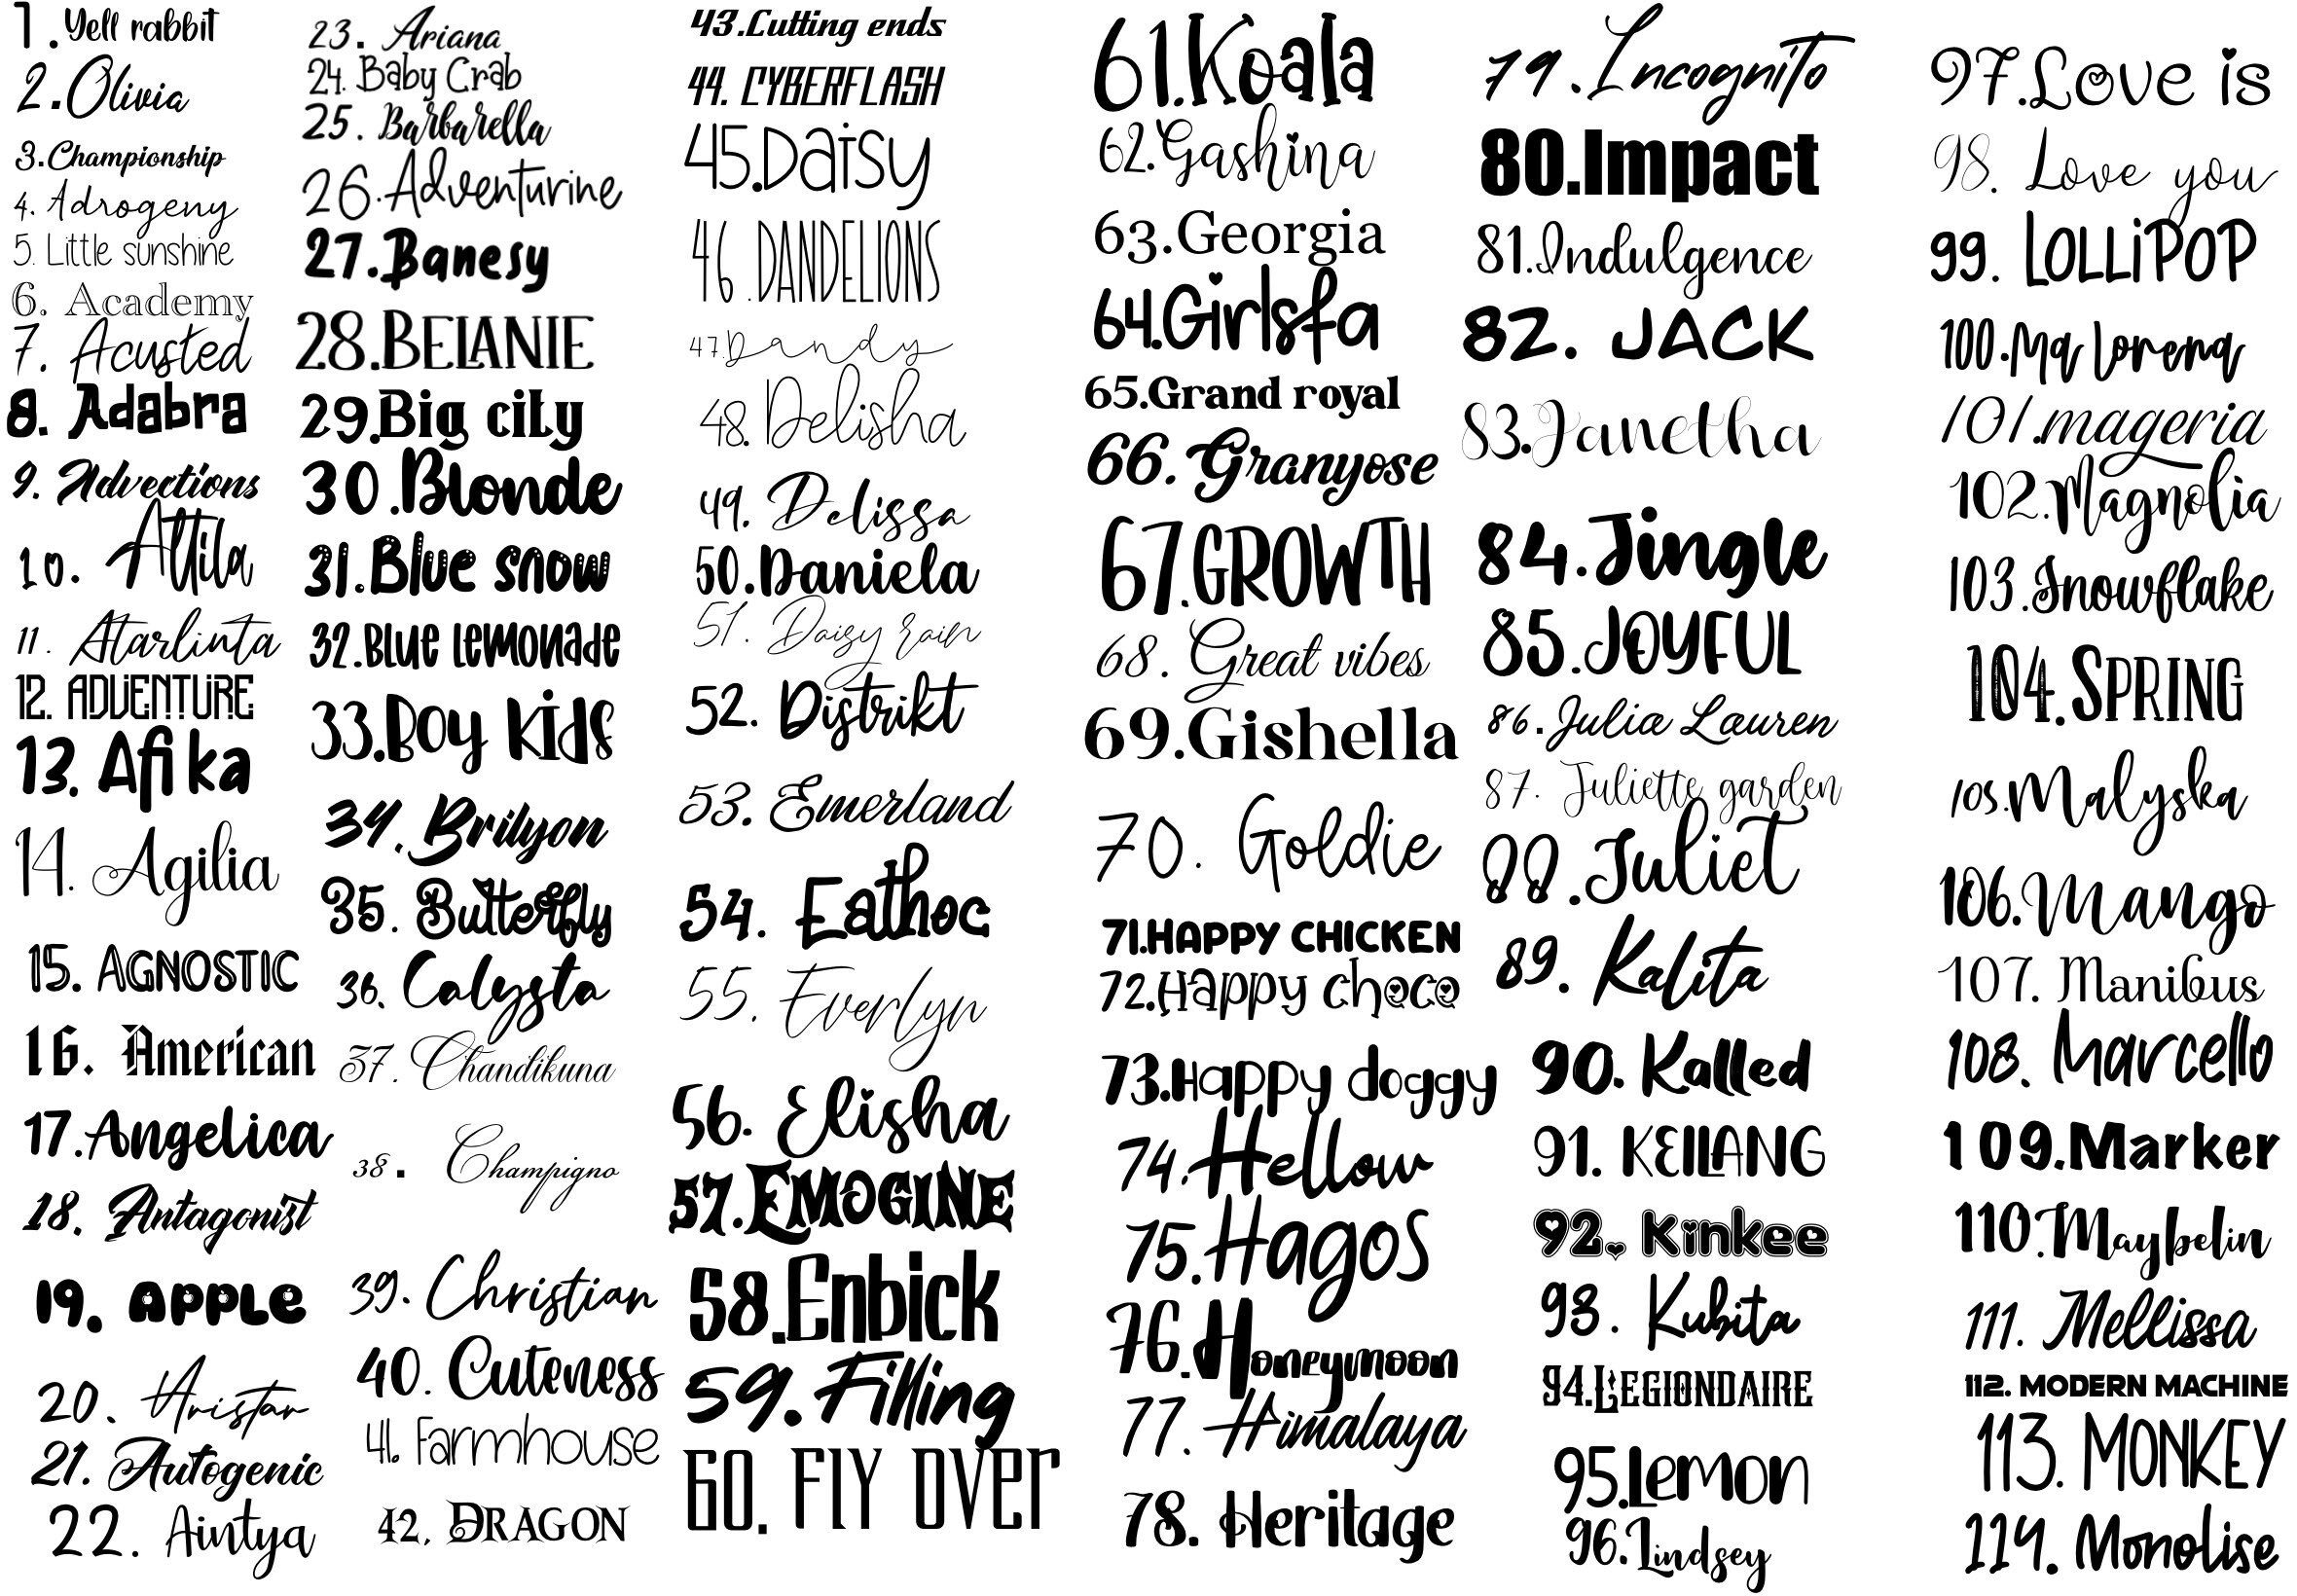 1.Yell rabbit
2.Olivia
3.Championship
4. Adrogeny
5. Little sunshine
6. Academy
7. Acusted
8. Adabra
9. Advections
10. Attila
11. Atarlinta
12. ADVENTURE
13. Afika
14. Agilia
15. AGNOSTIC
16. American
17.Angelica
18. Antagonist
19. APPLE
20. Aristar
21. Autogenic
22. Aintya
23. Ariana
24. Baby Crab
25. Barbarella
26.Adventurine
27.Banesy
28.BELANIE
29.Big city
30.Blonde
31.Blue snow
32.Blue lemonade
33.Boy Kids
34. Brilyon
35. Butterfly
36. Calysta
37. Chandikuna
38. Champigno
39. Christian
40. Cuteness
41. Farmhouse
42. DRAGON
43.Cutting ends
44. CYBERFLASH
45.Daisy
46.DANDELIONS
47.Dandy
48. Delisha
49. Delissa
50.Daniela
51. Daisy rain
52. Distrikt
53. Emerland
54. Eathoc
55. Everlyn
56. Elisha
57.EMOGINE
58.Enbick
59.Filling
60. FLY OVER
61.Koala
62.Gashina
63.Georgia
64.Girlsfa
65.Grand royal
66.Granyose
67.GROWTH
68. Great vibes
69.Gishella
70. Goldie
71.HAPPY CHICKEN
72.Happy choco
73.Happy doggy
74.Hellow
75.Hagos
76.Honeymoon
77. Himalaya
78. Heritage
79.Incognito
80.Impact
81.Indulgence
82. JACK
83.Janetha
84.Jingle
85.JOYFUL
86.Julia Lauren
87. Juliette garden
88.Juliet
89. Kalita
90. Kalled
91. KEILANG
92. Kinkee
93. Kubita
94.LEGIONDAIRE
95.LEMON
96.Lindsey
97.Love is
98. Love you
99. LOLLiPOP
100.Ma lorena
101.mageria
102.Magnolia
103.Snowflake
104.SPRING
105.Malyska
106.Mango
107. Manibus
108. Marcello
109.Marker
110.Maybelin
111. Mellissa
112. MODERN MACHINE
113. MONKEY
114. Monolise